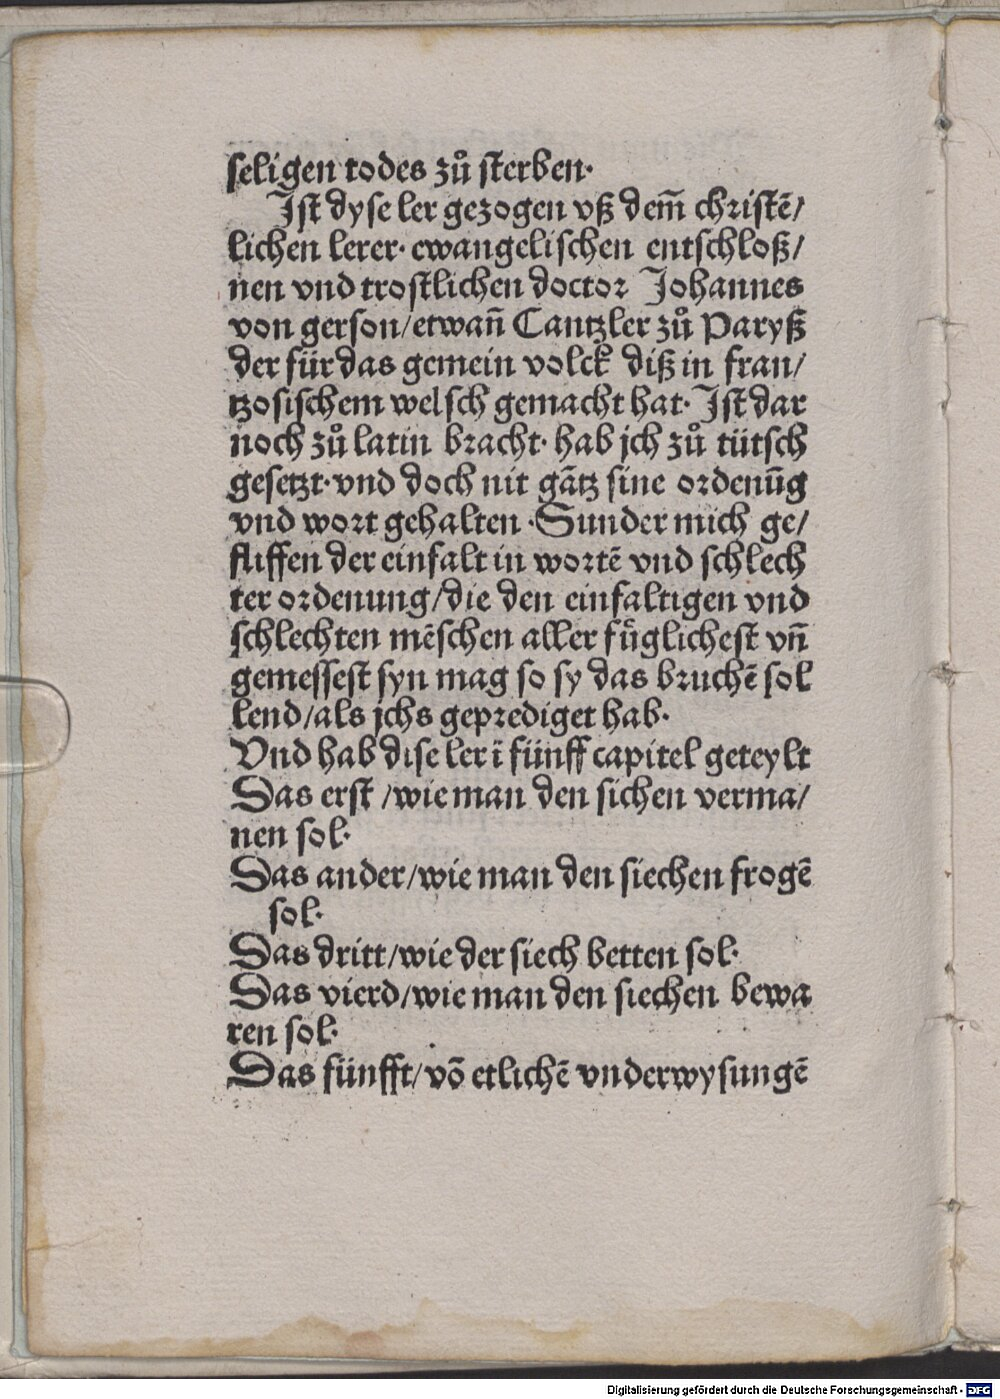 seligen todes zů sterben·
Ist dyse ler gezogen vß dem̃ christē/
lichen lerer· ewangelischen entschloß/
nen vnd trostlichen doctor Johannes
von gerson/etwañ Cantzler zů Paryß
der für das gemein volck diß in fran/
tzosischem welsch gemacht hat· Ist dar
noch zů latin bracht· hab jch zů tütsch
gesetzt· vnd doch nit gãtz sine ordenũg
vnd wort gehalten ·Sunder mich ge/
flissen der einfalt in wortē vnd schlech
ter ordenung/die den einfaltigen vnd
schlechten mēschen aller fůglichest vñ
gemessest syn mag so sy das bruchē sol
lend/als jchs geprediget hab·
Vnd hab dise ler ī fünff capitel geteylt
Das erst /wie man den sichen verma/
nen sol·
Das ander/wie man den siechen frogē
sol·
Das dritt/wie der siech betten sol·
Das vierd/wie man den siechen bewa
ren sol·
Das fünfft/võ etlichē vnderwysungē
Digitalisierung gefördert durch die Deutsche Forschungsgemeinschaft - DFG